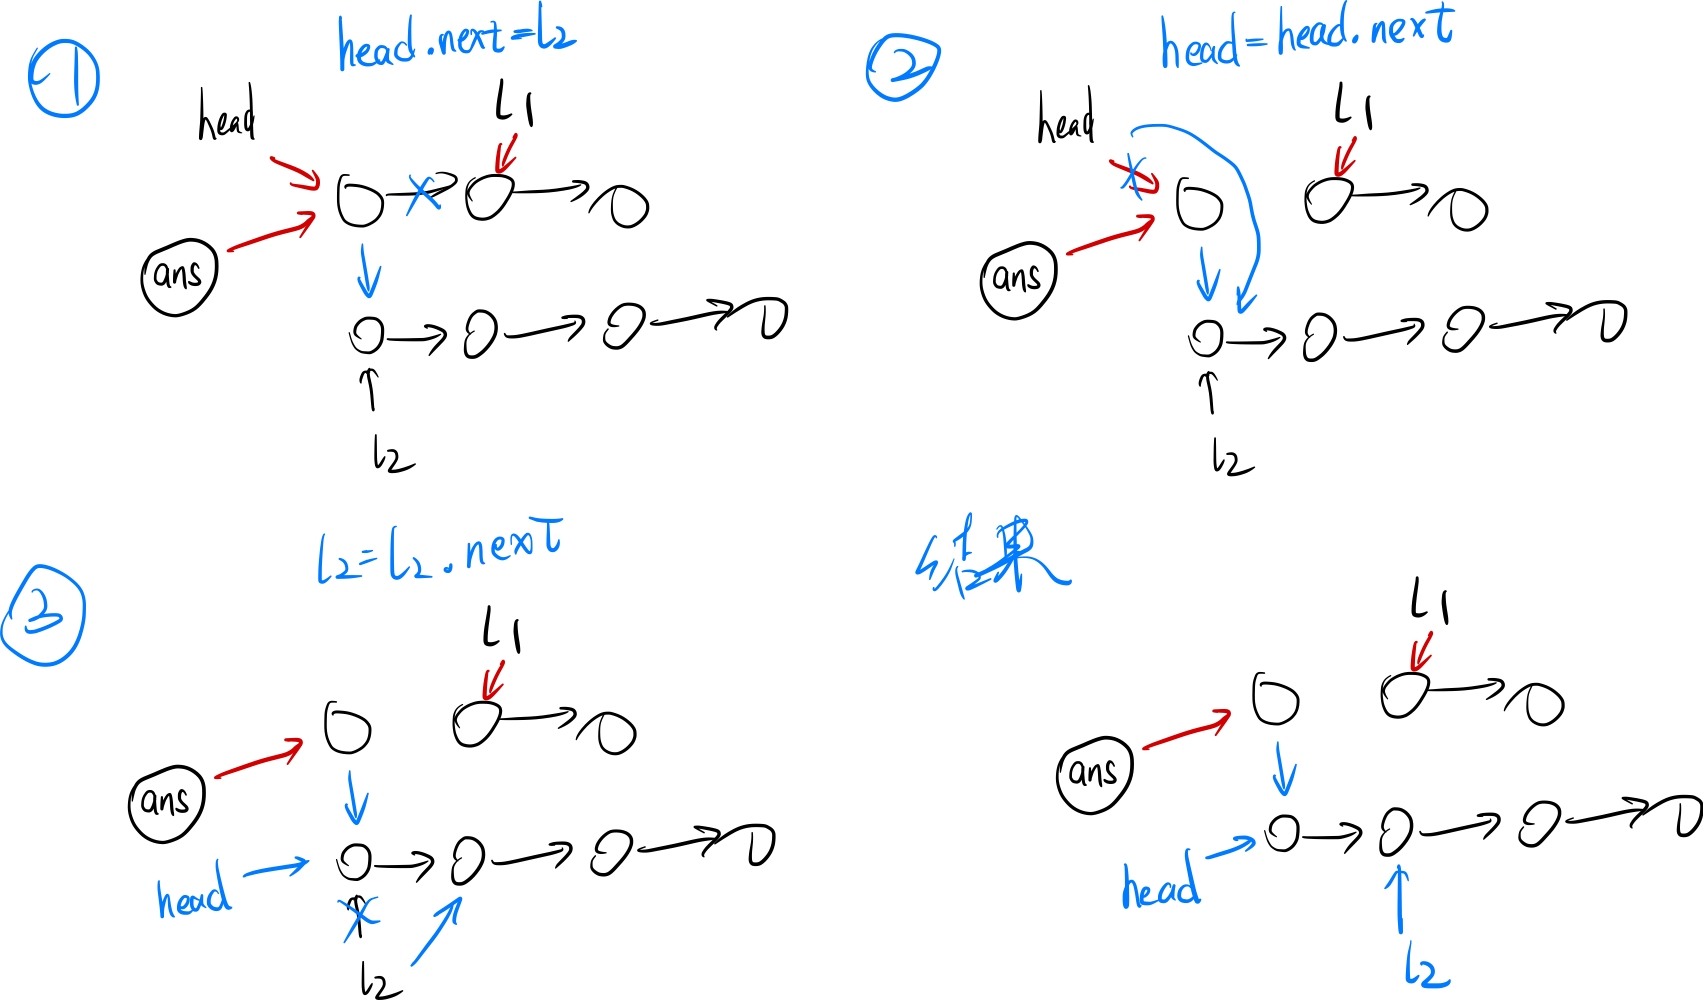 ① head.next=l2
head
L1
ans
l2
② head=head.next
head
L1
ans
l2
③ l2=l2.next
L1
ans
head
l2
结果
L1
ans
head
l2